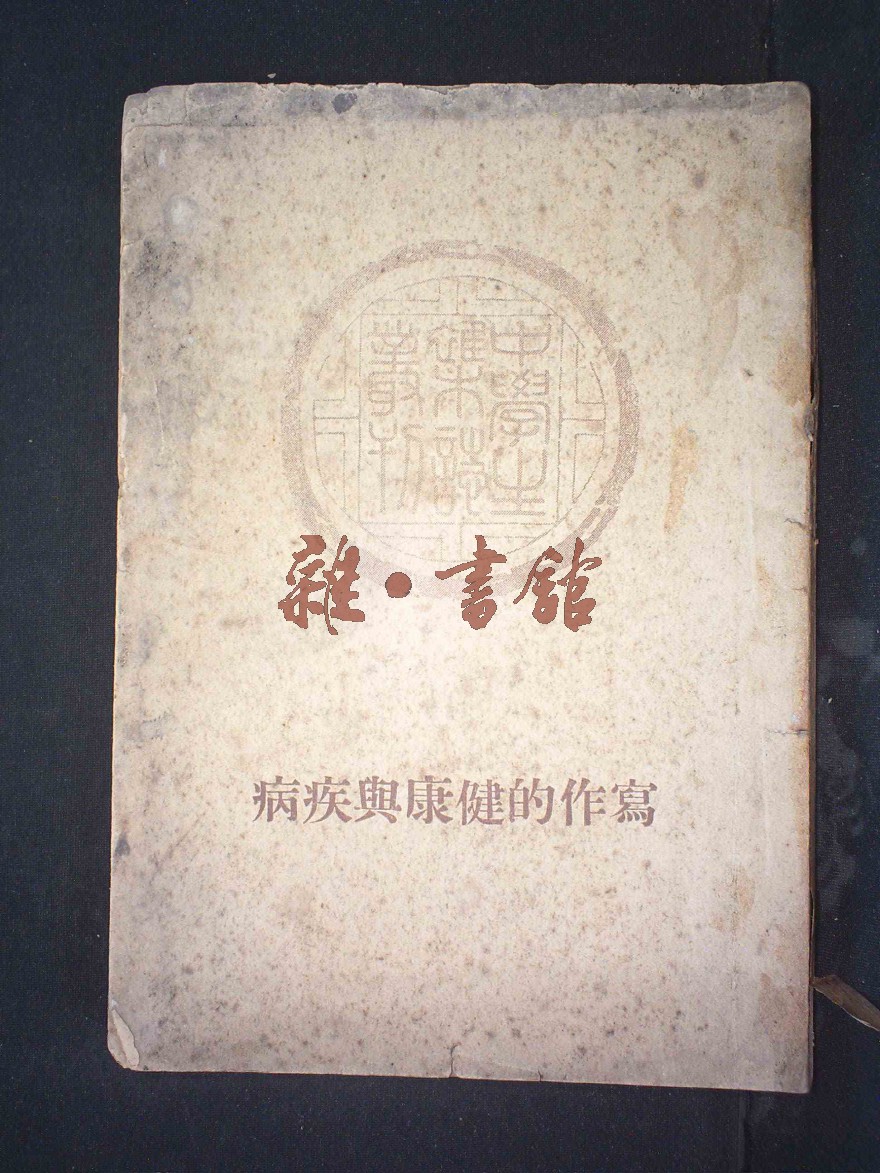 中學生
雜誌
叢刊
雜•書館
寫作的健康與疾病